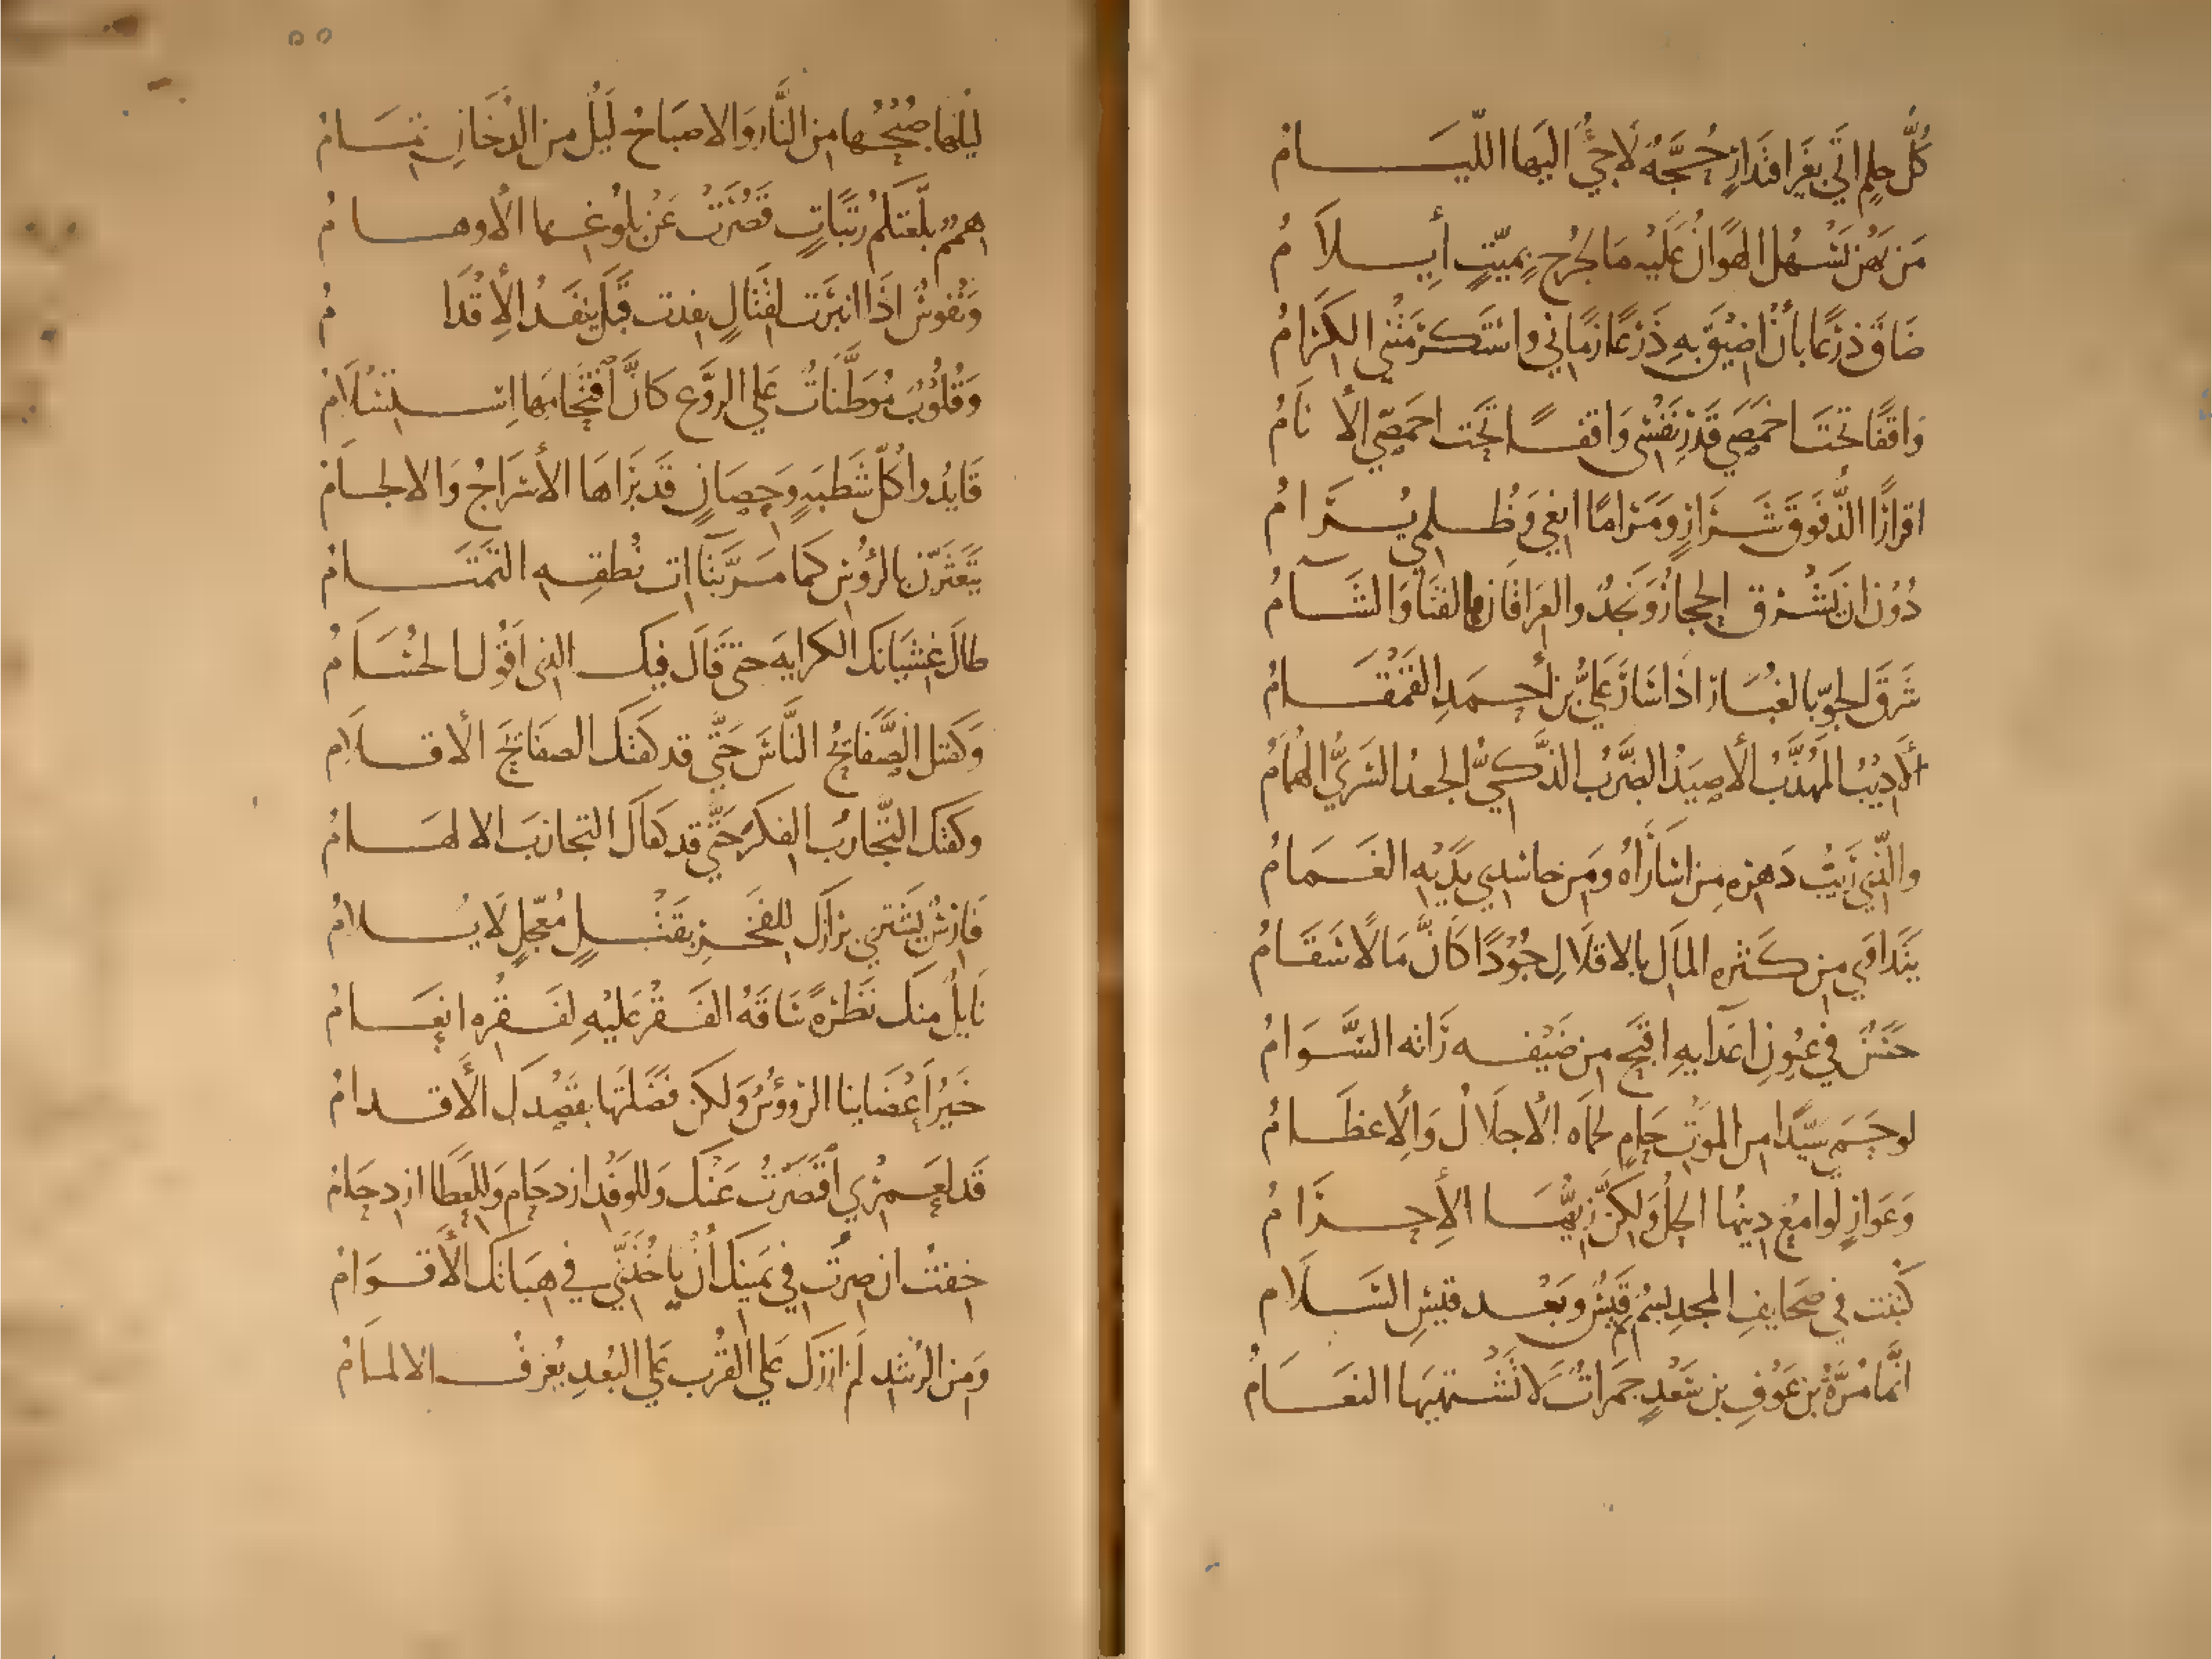 كُلُّ حِلمٍ اتَى بغَير اقتدَارٍ حُجَّةٌ لَاجِئٌ اليهَا اللّيَامُ
مَن يَهُن يَسْهُل الهَوَانُ عَلَيْه مَا لجُرحٍ بمَيّتٍ أيلَامُ
ضَاقَ ذرْعًا بأنْ اضيْقَ بهِ ذَرْعًا زمَاني واسْتَكرَمَتْني الكرَامُ
وَاقفًا تحتَ اخمَصَي قَدْرِ نَفْسي وَاقفًا تَحتَ اخمَصَي الأنَامُ
اقرارًا الذُّ فَوقَ شَرَارٍ وَمَرَامًا ابغي وَظُلمي يُرَامُ
دُوْنَ ان يَشْرق الحجازُ وَنَجدٌ والعرَاقَان بالقنَا وَالشَّآمُ
شَرَقَ الجَوّ بالغبَار اذَا سَارَ عَليُّ بن أحمَدِ القَمْقَامُ
الأدِيْبُ المهَذَّبُ الأصيَدُ الضَّربُ الذَّكيُّ الجعدُ السَريُّ الهُمَامُ
والَّذي رَيْبُ دَهرِه مِن اسَارَاهُ ومَن حاسدي يدَيْهِ الغَمَامُ
يَتَدَاوَى مِن كَثرهِ المَال بالاقلَالِ جُوْدًا كَانَّ مَالًا سَقَامُ
حَسَنٌ في عيُونِ اعدَايهِ اقبَح من ضَيْفه رَاته السَّوَامُ
لو حَمَى سَيّدًا من الموتِ حَامٍ لحمَاه الاجلَالُ وَالأعظَامُ
وَعَوَارٍ لوامعٌ دِينُهَا الحِلُّ وَلكنَّ زِيَّهَا الأِحرَامُ
كُتبت في صَحَايفِ المجدِ بسْمٌ ثم قَيْسٌ وبَعْد قيْسِ السَلَام
انَّمَا مُرَّةُ بن عَوْفِ بن سَعْدٍ جَمرَاتٌ لَا تَشْتهيهَا النعَامُ
ليلهَا صُبْحُهَا من النَّار وَالاصبَاحُ لَيْلٌ من الدخَانِ تمَامُ
هممٌ بلّغتكم رتبَاتٍ قَصُرَتْ عَنْ بلوغها الأوهامُ
وَنفُوسٌ اذَا انبَرَت لقتَالٍ نفدت قَبْلَ ينفَدُ الأِقْدَامُ
وَقُلوبٌ مُوَطَّنَاتٌ عَلى الرَّوْع كَانَّ اقتحَامَهَا اسْتسْلَامُ
قَايدُوا كُلّ شَطبَهٍ وَحِصَانٍ قَد بَرَاهَا الأسْرَاجُ وَالالجَامُ
يتَعَثَّرْنَ بالرؤُسِ كمَا مَرَّ بتَآات نُطقِه التمتَامُ
طالَ غِشيَانكَ الكرايهَ حتى قَالَ فيكَ الذي اقُولُ الحُسَامُ
وَكفتكَ الصَّفَايحُ النَّاسَ حَتَّى قد كفَتكَ الصفَايحَ الأقلَامُ
وكفتكَ التَّجَاربُ الفكرَ حَتَّى قد كفَاكَ التجاربَ الالهَامُ
فَارسٌ يَشْتري برَازَكَ للفَخرِ بقَتْلٍ مُعَجّلٍ لَا يُلامُ
نَايلٌ منكَ نَظرَةً سَاقَهُ الفَقْرُ عَلَيْهِ لفَقْرِه انعَامُ
خَيْرُ اَعْضَاينا الرؤوْسُ وَلكن فَضَلَتهَا بقَصْدكَ الأَقدامُ
قَد لعَمْري اقْصَرْتُ عَنْكَ وَللوَفْد ازدحَام وَللعَطَايا ازدحَامُ
خِفتُ ان صرتُ في يَمينكَ أنْ يَاخُذَنّي في هِبَاتكَ الأقوَامُ
وَمن الرُشْدِ لَم ازُرْكَ عَلى القُرْب عَلى البُعدِ يُعْرفُ الالمَامُ